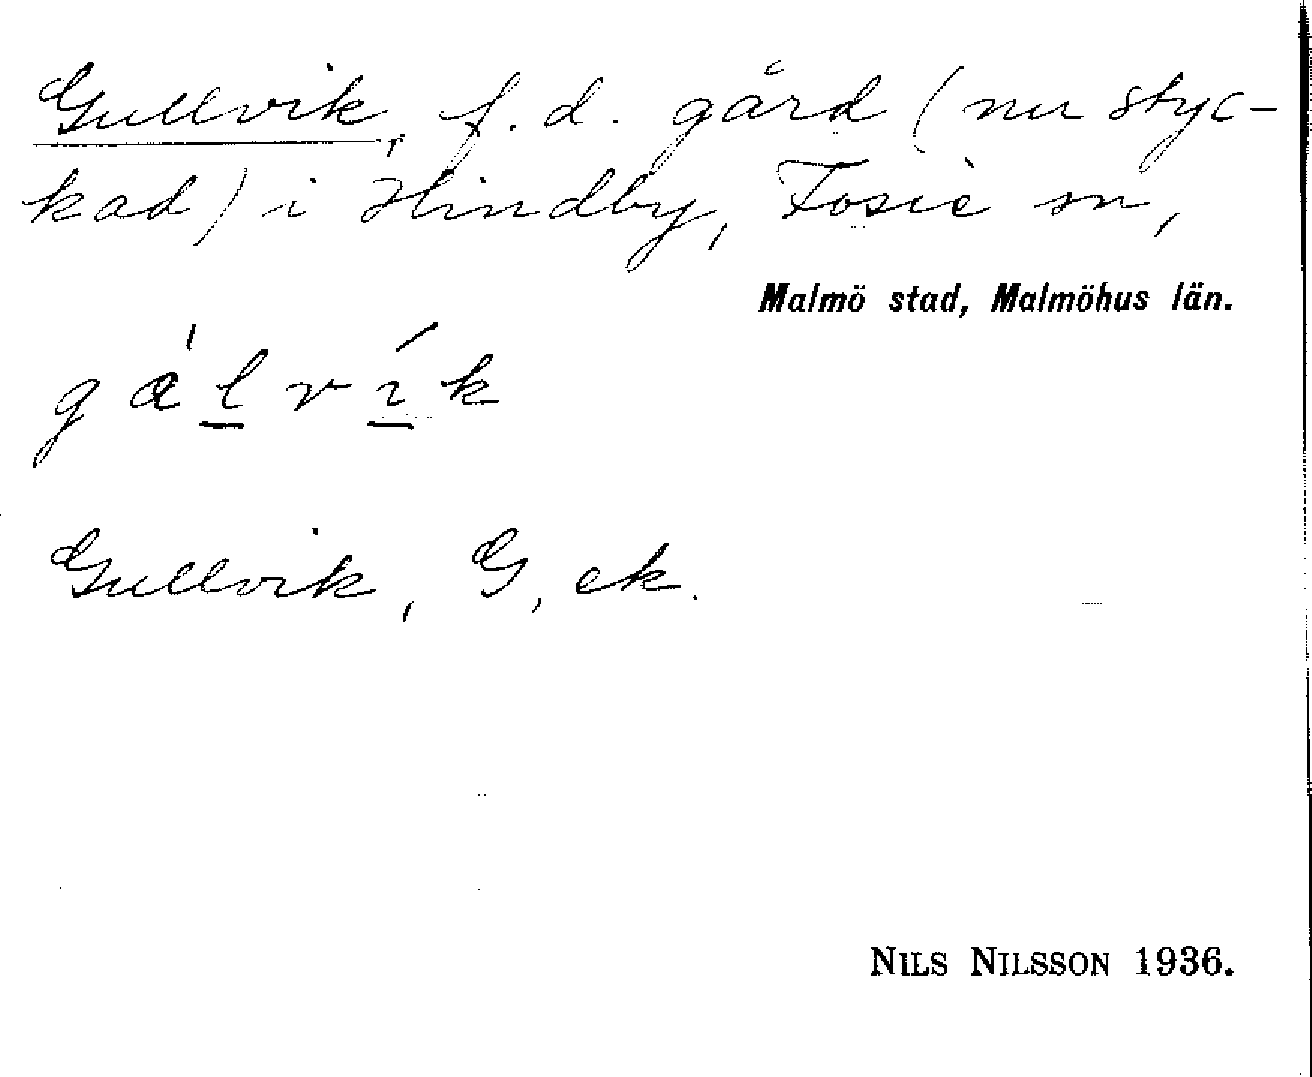 Gullvik, f. d. gård (nu styc-
kad) i Hindby, Fosie sn,
Malmö stad, Malmöhus län.
Gullvik, G, ek.
NILS NILSSON 1936.